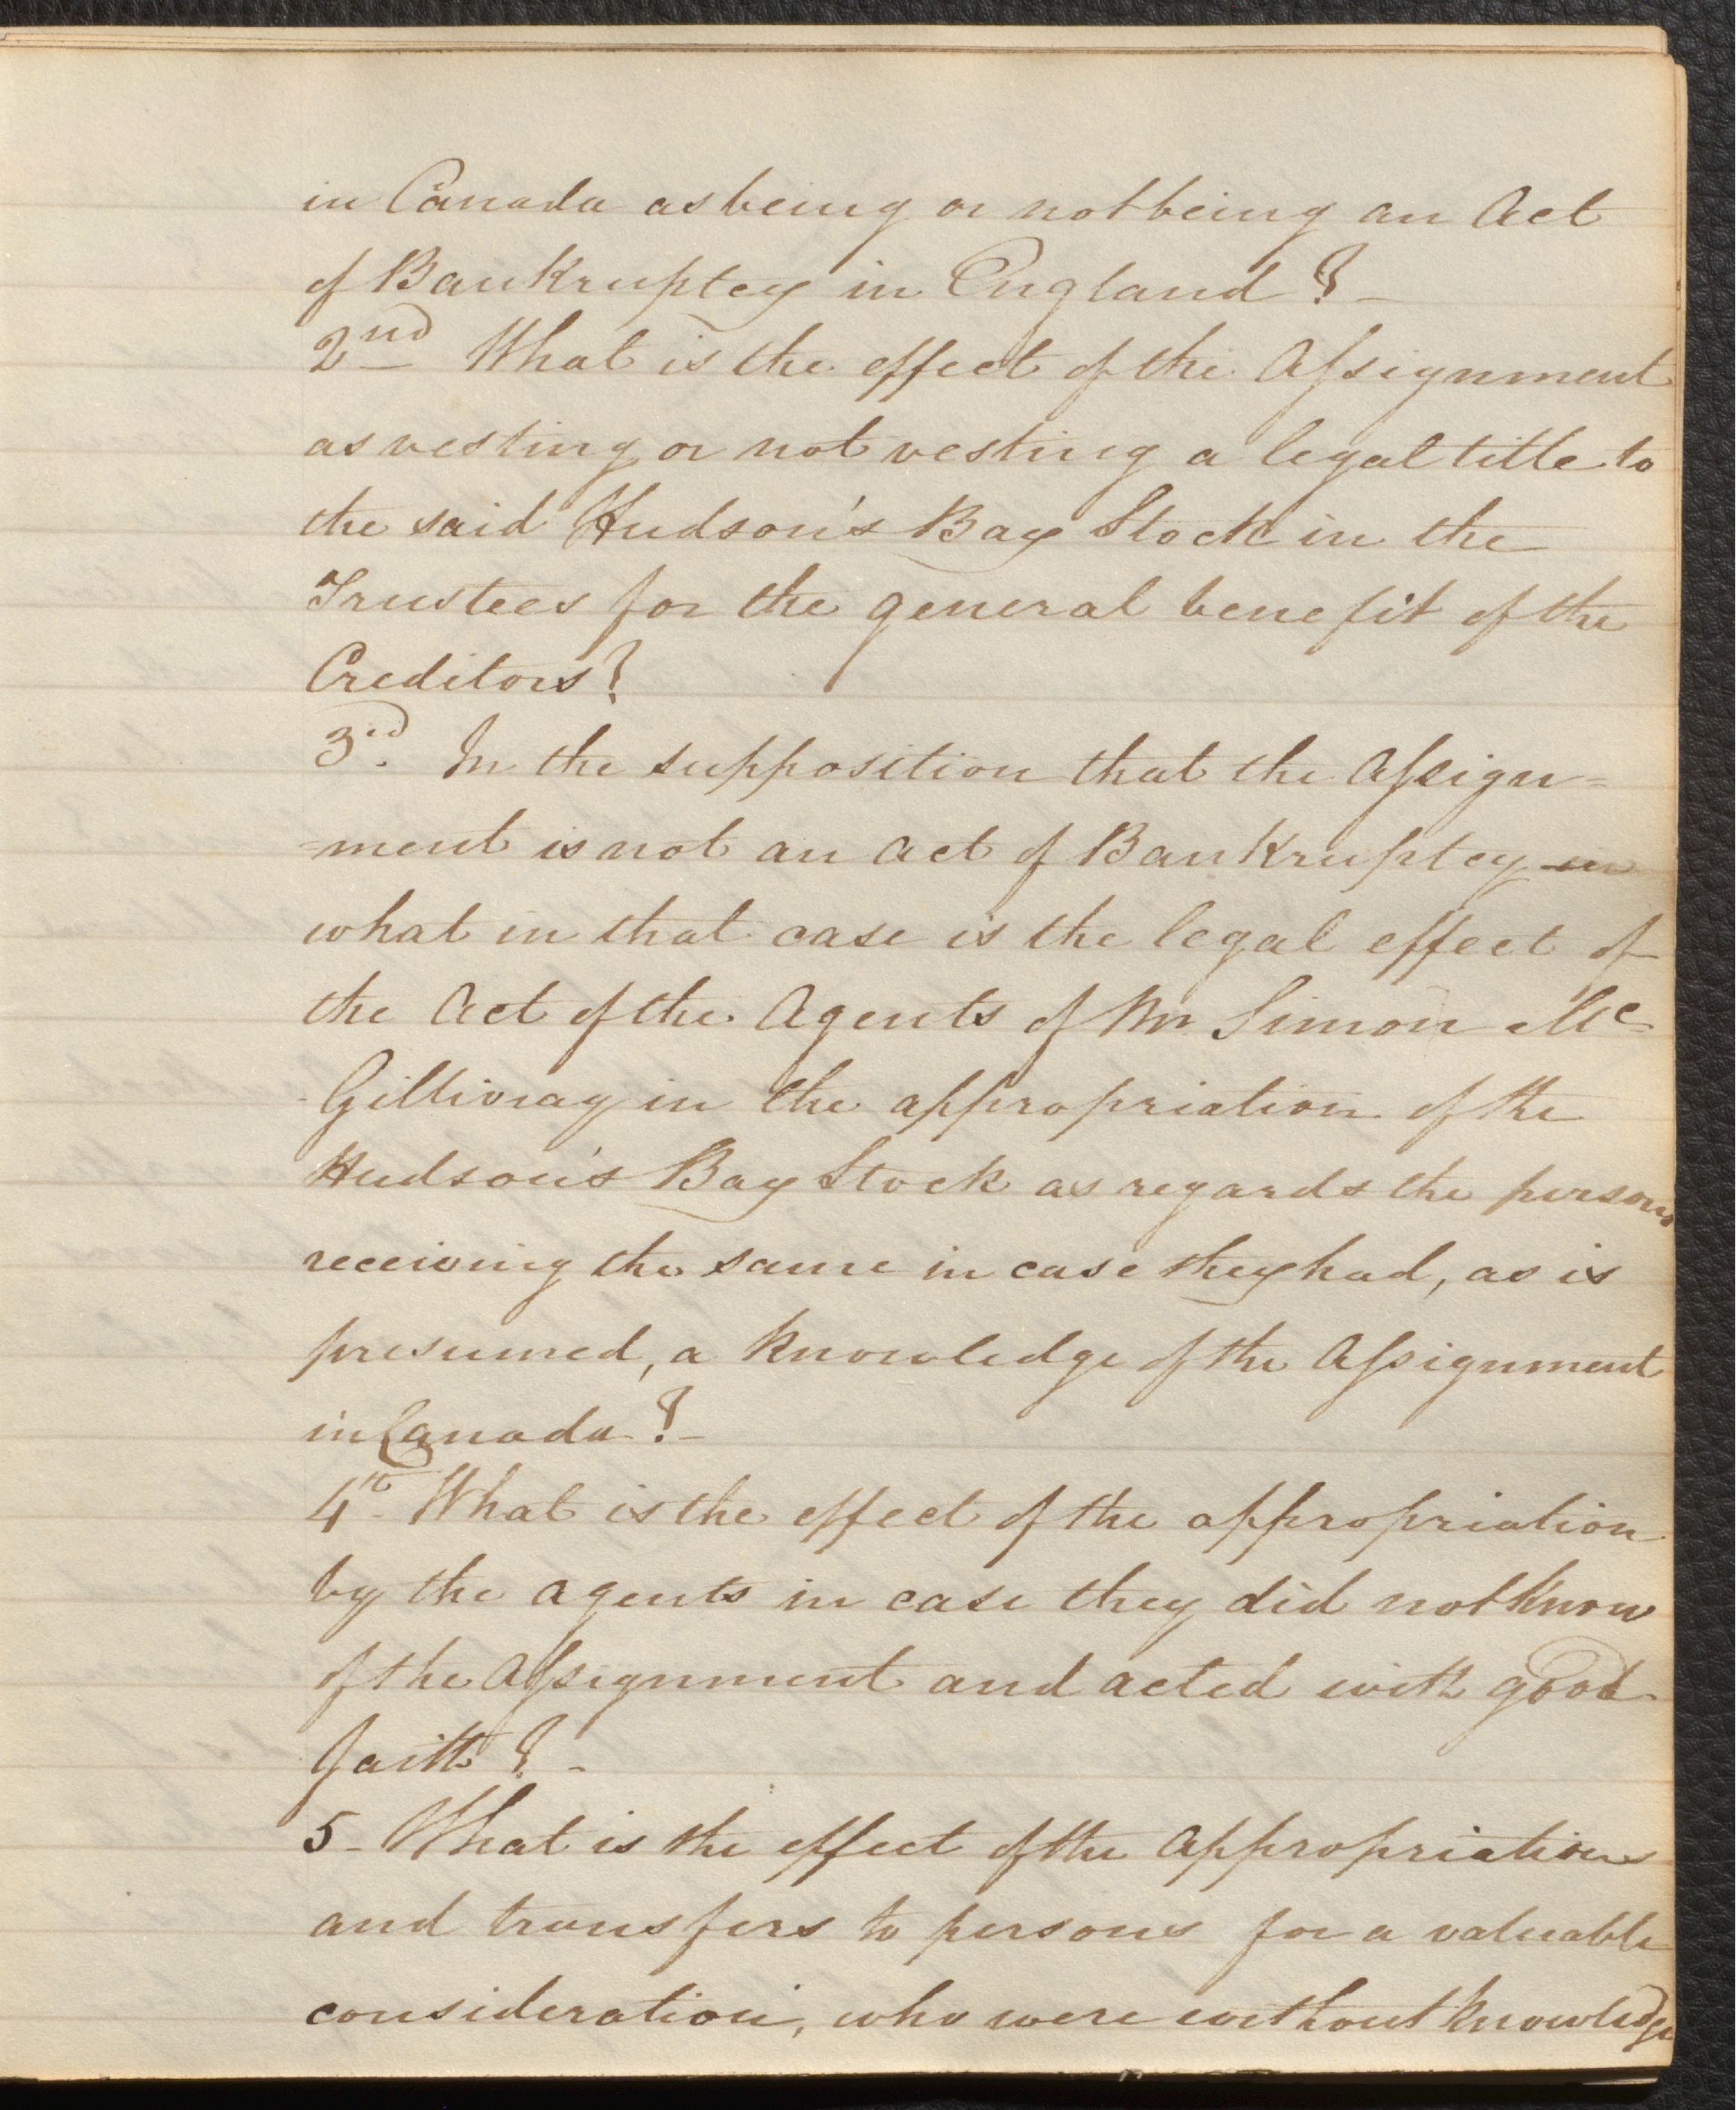 in Canada as being or not being an Act
of Bankruptcy in England ? –
2nd What is the effect of the Assignment
as vesting or not vesting a legal title to
the said Hudson's Bay Stock in the
Trustees for the general benefit of the
Creditors?
3rd. In the supposition that the Assign=
=ment is not an Act of Bankruptcy in
what in that case is the legal effect of
the Act of the Agents of Mr Simon Mc
Gillivray in the appropriation of the
Hudson's Bay Stock as regards the persons
receiving the same in case they had, as is
presumed, a knowledge of the Assignment
in Canada ? –
4th - What is the effect of the appropriation
by the agents in case they did not know
of the Assignment and acted with good
faith ? -
5 - What is the effect of the Appropriations
and transfers to persons for a valuable
consideration, who were without knowledge